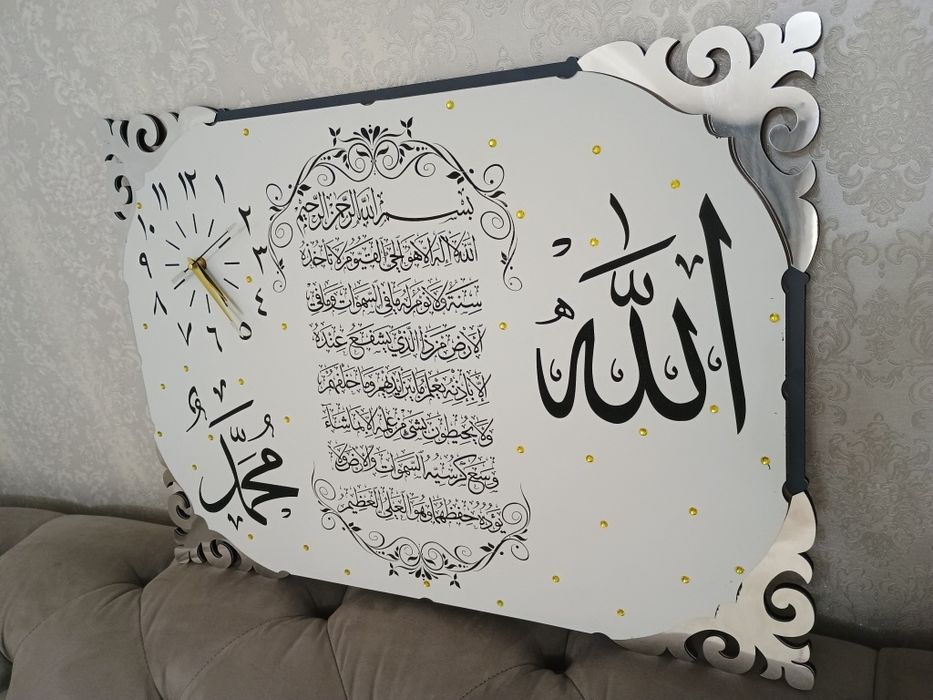 الله
بسم الله الرحمن الرحيم
الله لا اله الا هو الحي القيوم لا تأخذه
سنة ولا نوم له ما في السموات وما في
الارض من ذا الذي يشفع عنده
الا بإذنه يعلم ما بين ايديهم وما خلفهم
ولا يحيطون بشيء من علمه الا بما شاء
وسع كرسيه السموات والارض ولا
يؤده حفظهما وهو العلي العظيم
١٢
١
٢
٣
٤
٥
٦
٧
٨
٩
١٠
١١
محمد